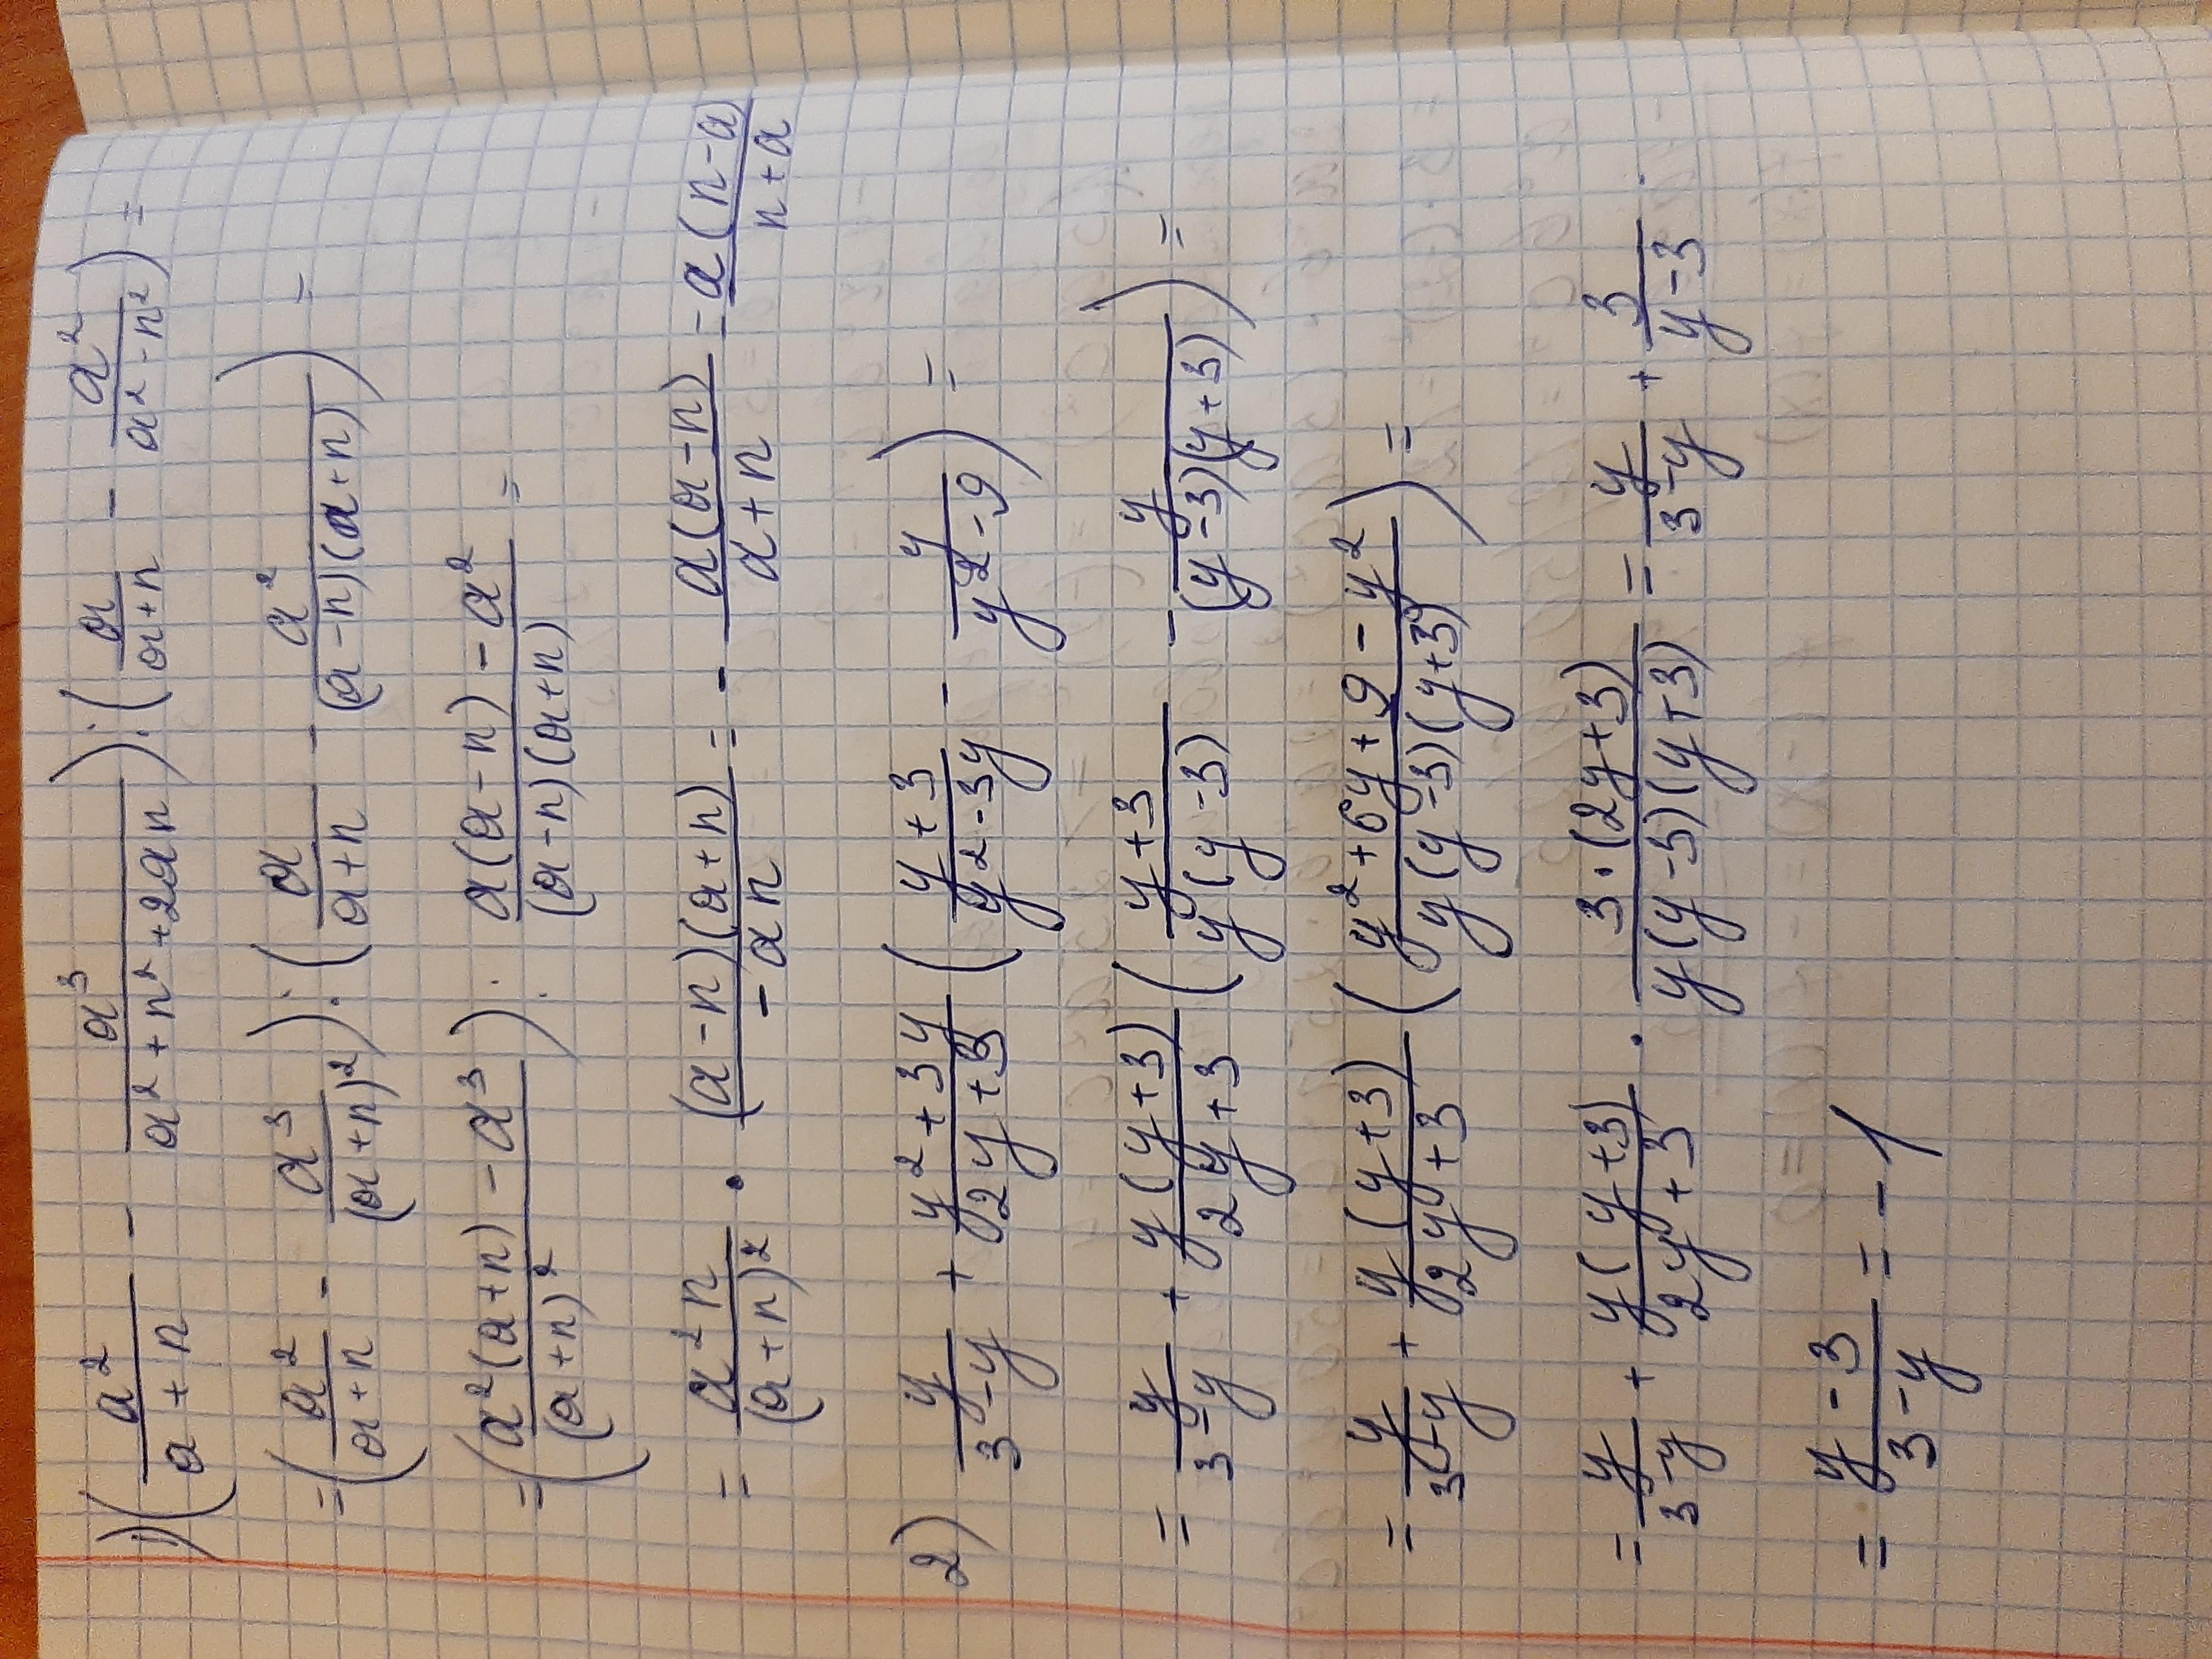 1) (a²/(a+n) - a³/(a²+n²+2an)) : (a/(a+n) - a²/(a²-n²)) =
= (a²/(a+n) - a³/(a+n)²) : (a/(a+n) - a²/((a-n)(a+n))) =
= (a²(a+n) - a³)/(a+n)²) : (a(a-n) - a²)/((a-n)(a+n)) =
= a²n/(a+n)² · (a-n)(a+n)/(-an) = - a(a-n)/(a+n) = a(n-a)/(n+a)
2) y/(3-y) + (y²+3y)/(2y+3) ((y+3)/(y²-3y) - y/(y²-9)) =
= y/(3-y) + y(y+3)/(2y+3) ((y+3)/(y(y-3)) - y/((y-3)(y+3))) =
= y/(3-y) + y(y+3)/(2y+3) ((y²+6y+9-y²)/(y(y-3)(y+3))) =
= y/(3-y) + y(y+3)/(2y+3) · 3·(2y+3)/(y(y-3)(y+3)) = y/(3-y) + 3/(y-3)
= (y-3)/(3-y) = -1